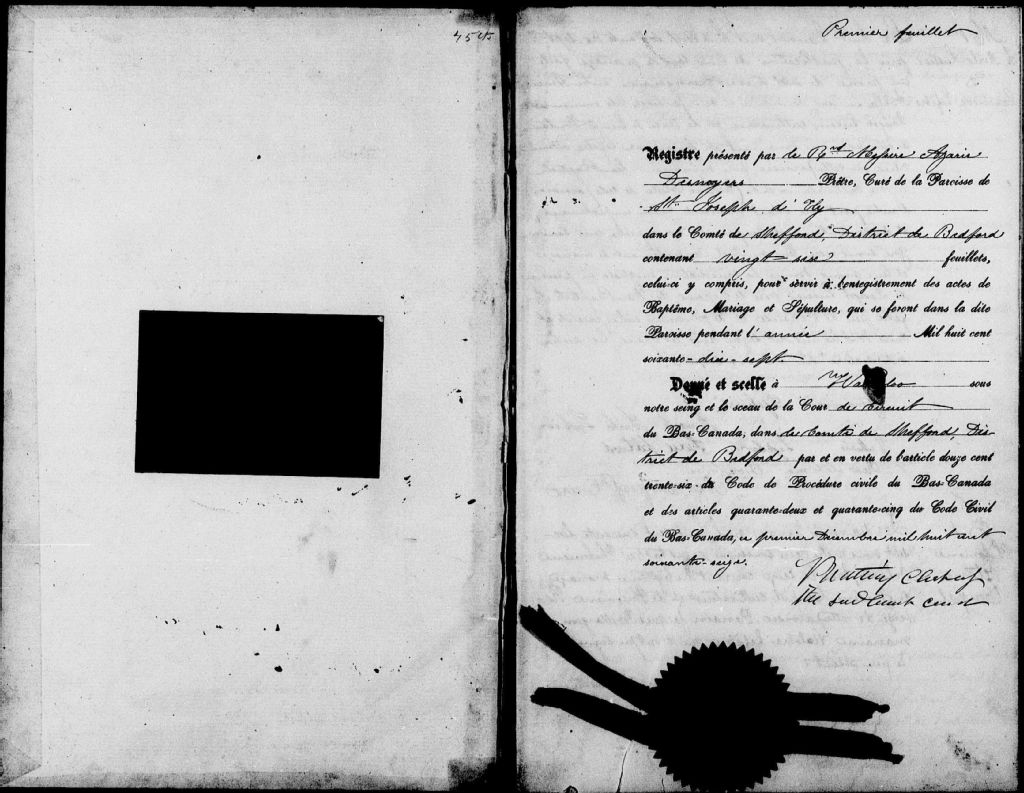 45 cts
Premier feuillet
Registre présenté par le Rnd Messire Azarie
Desnoyers Prêtre, Curé de la Paroisse de
St Joseph d'Ely
dans le Comté de Shefford, District de Bedford
contenant vingt-six feuillets,
celui-ci y compris, pour servir à l'enregistrement des actes de
Baptême, Mariage et Sépulture, qui se feront dans la dite
Paroisse pendant l'année Mil huit cent
soixante-dix-sept.
Donné et scellé à Waterloo sous
notre seing et le sceau de la Cour de Circuit
du Bas-Canada, dans le Comté de Shefford, Dis-
trict de Bedford par et en vertu de l'article douze cent
trente-six du Code de Procédure civile du Bas-Canada
et des articles quarante-deux et quarante-cinq du Code Civil
du Bas-Canada, ce premier Décembre mil huit cent
soixante-seize.